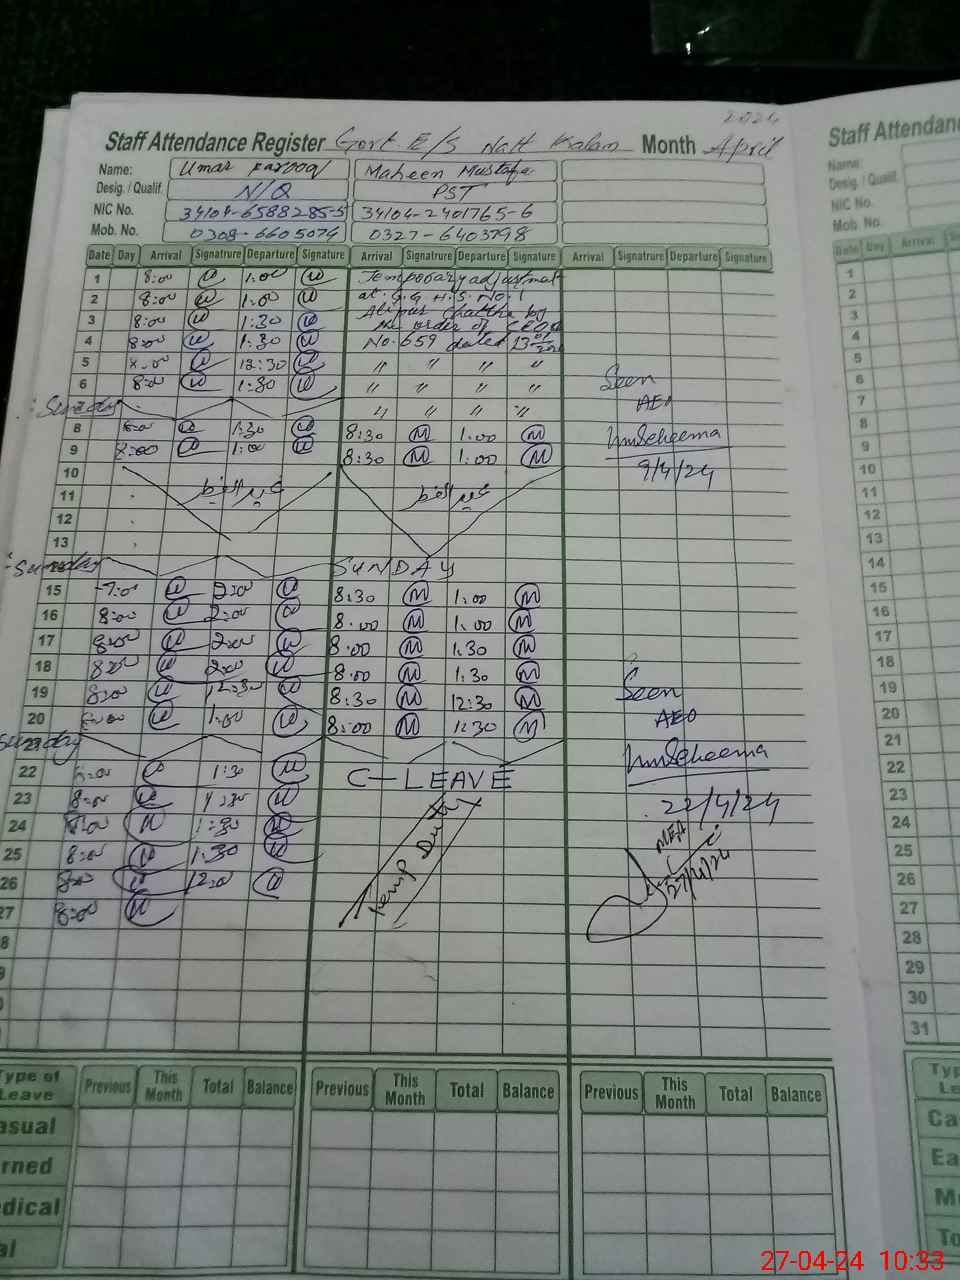 2024
Staff Attendance Register Govt. E/S Natt Kalam Month April
Name: Umar Farooq Maheen Mustafa
Desig. / Qualif. N/Q PST
NIC No. 34104-6588285-5 34104-2401765-6
Mob. No. 0308-6605074 0327-6403798
Date Day Arrival Signatrure Departure Signature Arrival Signatrure Departure Signature Arrival Signatrure Departure Signature
1 8:00 U 1:00 U Temporary adjustment
2 8:00 U 1:00 U at G.G.H.S. No. 1
3 8:00 U 1:30 U Alipur Chattha by the order of
4 8:00 U 1:30 U No. 659 dated
5 8:00 U 12:30 U " " " "
6 8:00 U 1:30 U " " " " Seen
Sunday " " " " AEO
8 8:00 U 1:30 U 8:30 M 1:00 M UmScheema
9 8:00 U 1:00 U 8:30 M 1:00 M 9/4/24
10
11 عید الفطر عید الفطر
12
13
Sunday SUNDAY
15 7:00 U 2:00 U 8:30 M 1:00 M
16 8:00 U 2:00 U 8:00 M 1:00 M
17 8:00 U 2:00 U 8:00 M 1:30 M
18 8:00 U 2:00 U 8:00 M 1:30 M
19 8:00 U 12:30 U 8:30 M 12:30 M Seen
20 8:00 U 1:00 U 8:00 M 1:30 M AEO
Sunday
22 8:00 U 1:30 U C-LEAVE UmScheema
23 8:00 U 1:30 U 22/4/24
24 8:00 U 1:30 U Temp Duty
25 8:00 U 1:30 U MEA
26 8:00 U 12:00 U 27/4/24
27 8:00 U
8
9
0
Type of Leave Previous This Month Total Balance Previous This Month Total Balance Previous This Month Total Balance
asual
rned
dical
al
Staff Attendanc
Name:
Desig. / Qualif.
NIC No.
Mob. No.
Date Day Arrival S
1
2
3
4
5
6
7
8
9
10
11
12
13
14
15
16
17
18
19
20
21
22
23
24
25
26
27
28
29
30
31
Typ
Le
Ca
Ea
M
To
27-04-24 10:33